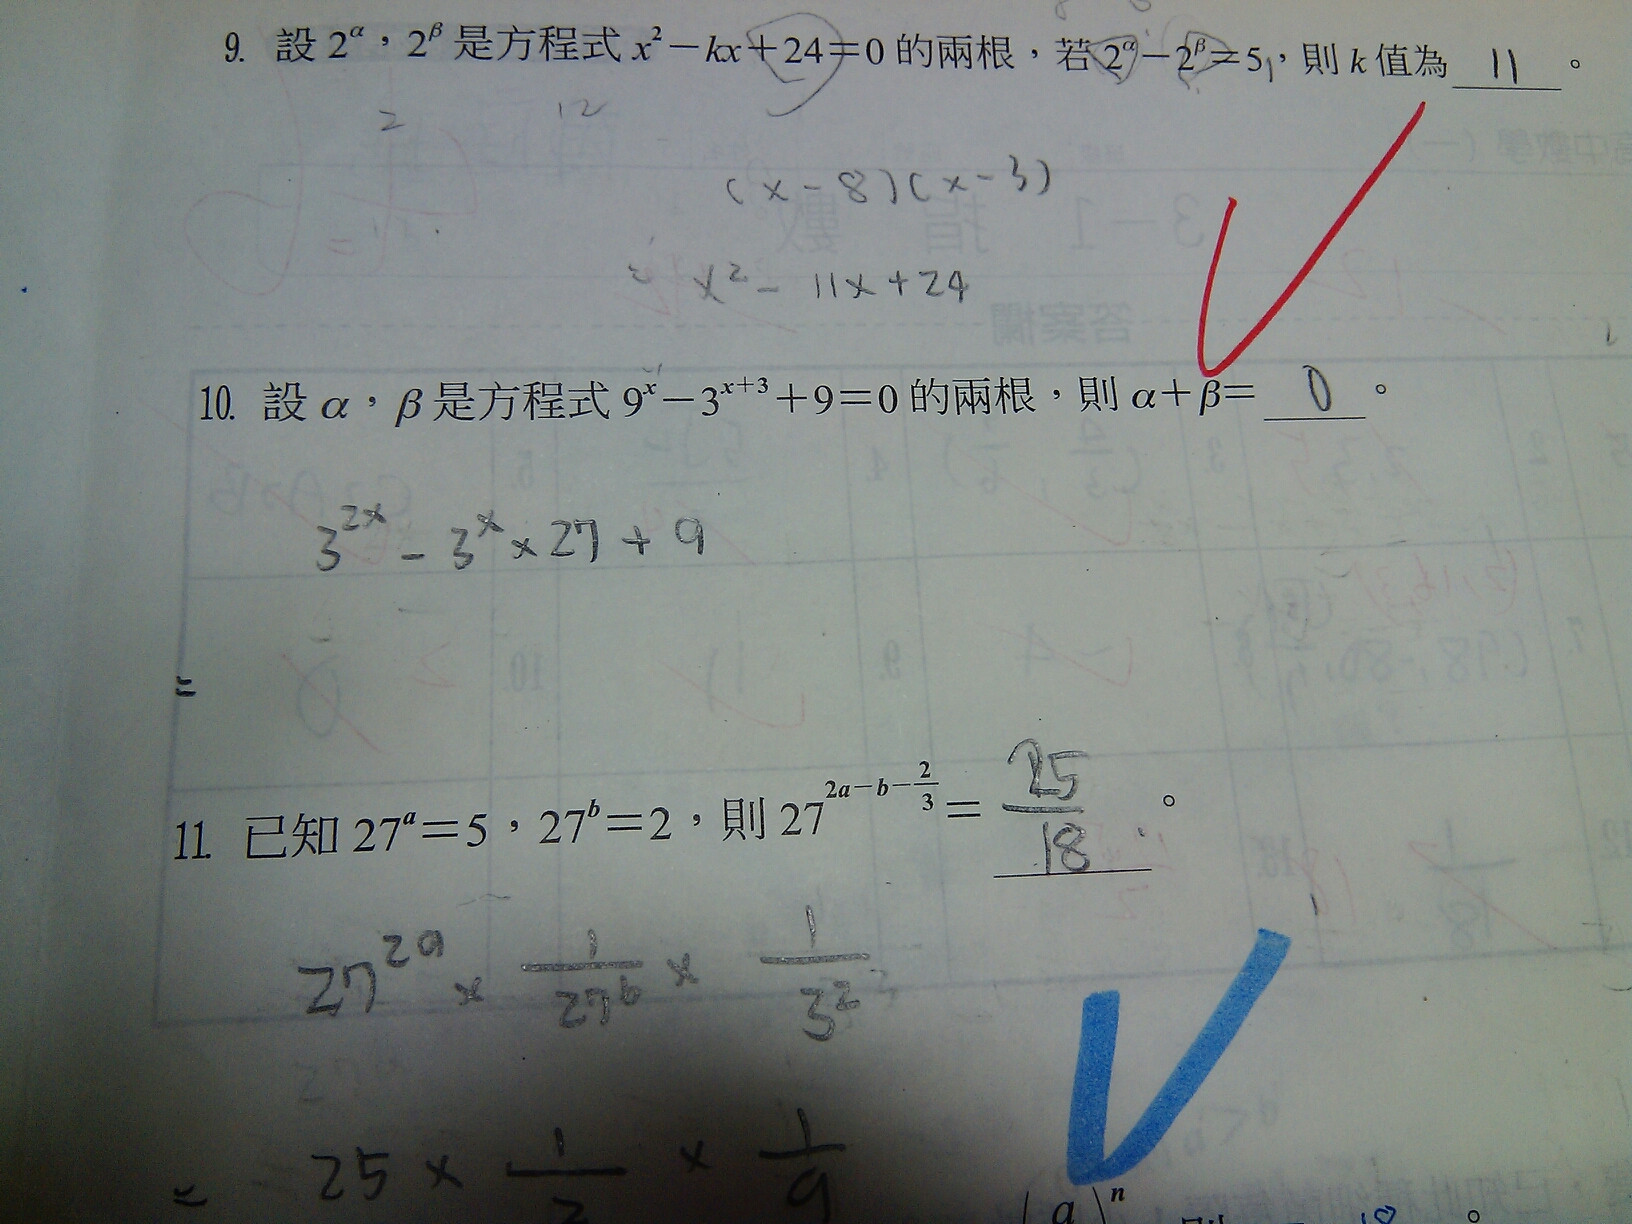 9. 設 2^α，2^β 是方程式 x²－kx＋24＝0 的兩根，若 2^α－2^β＝5，則 k 值為 11 。
2 12
(x－8)(x－3)
= x²－11x＋24
10. 設 α，β 是方程式 9^x－3^{x+3}＋9＝0 的兩根，則 α＋β＝ 0 。
3^{2x} － 3^x × 27 + 9
=
11. 已知 27^a＝5，27^b＝2，則 27^{2a－b－2/3}＝ 25/18 。
27^{2a} × 1/27^b × 1/3^2
= 25 × 1/2 × 1/9
(a)^n